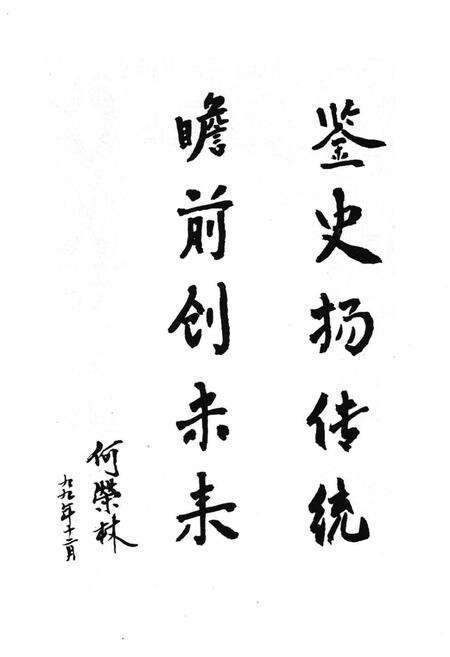 鉴史扬传统
瞻前创未来
何荣林
九九年十二月